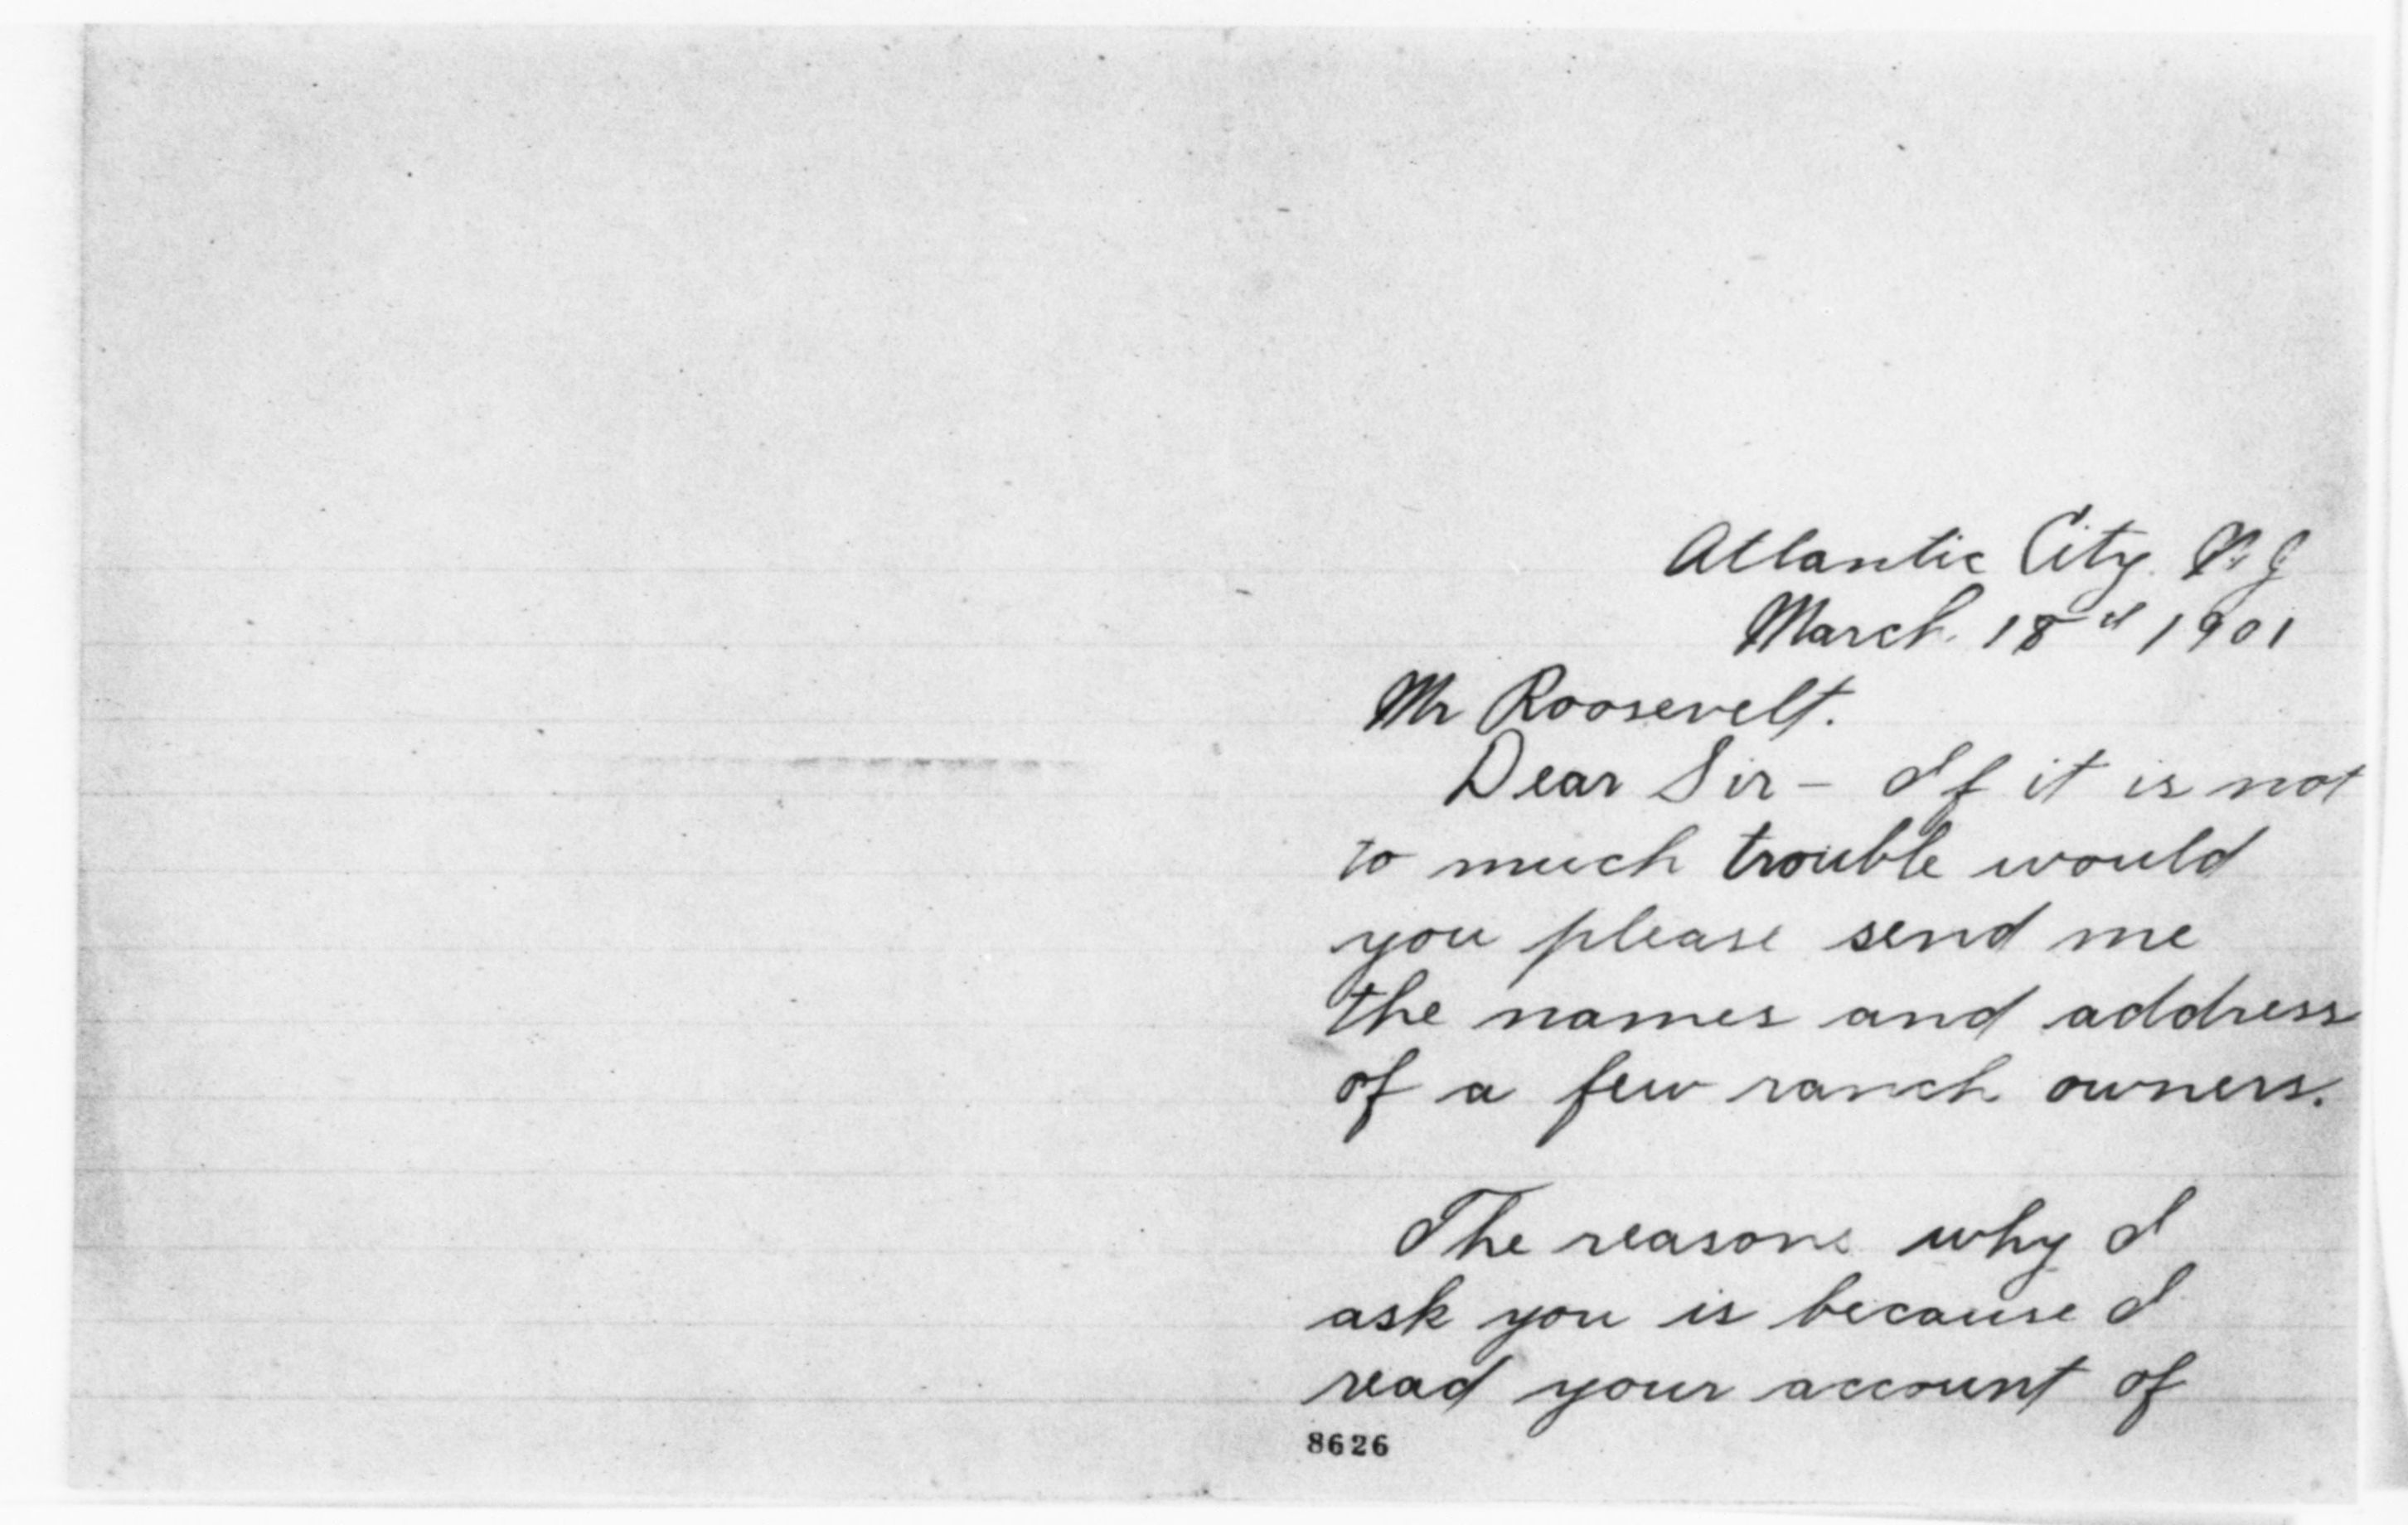 Atlantic City. N. J
March. 18d 1901
Mr Roosevelt.
Dear Sir - If it is not
to much trouble would
you please send me
the names and address
of a few ranch owners.
The reasons why I
ask you is because I
read your account of
8626